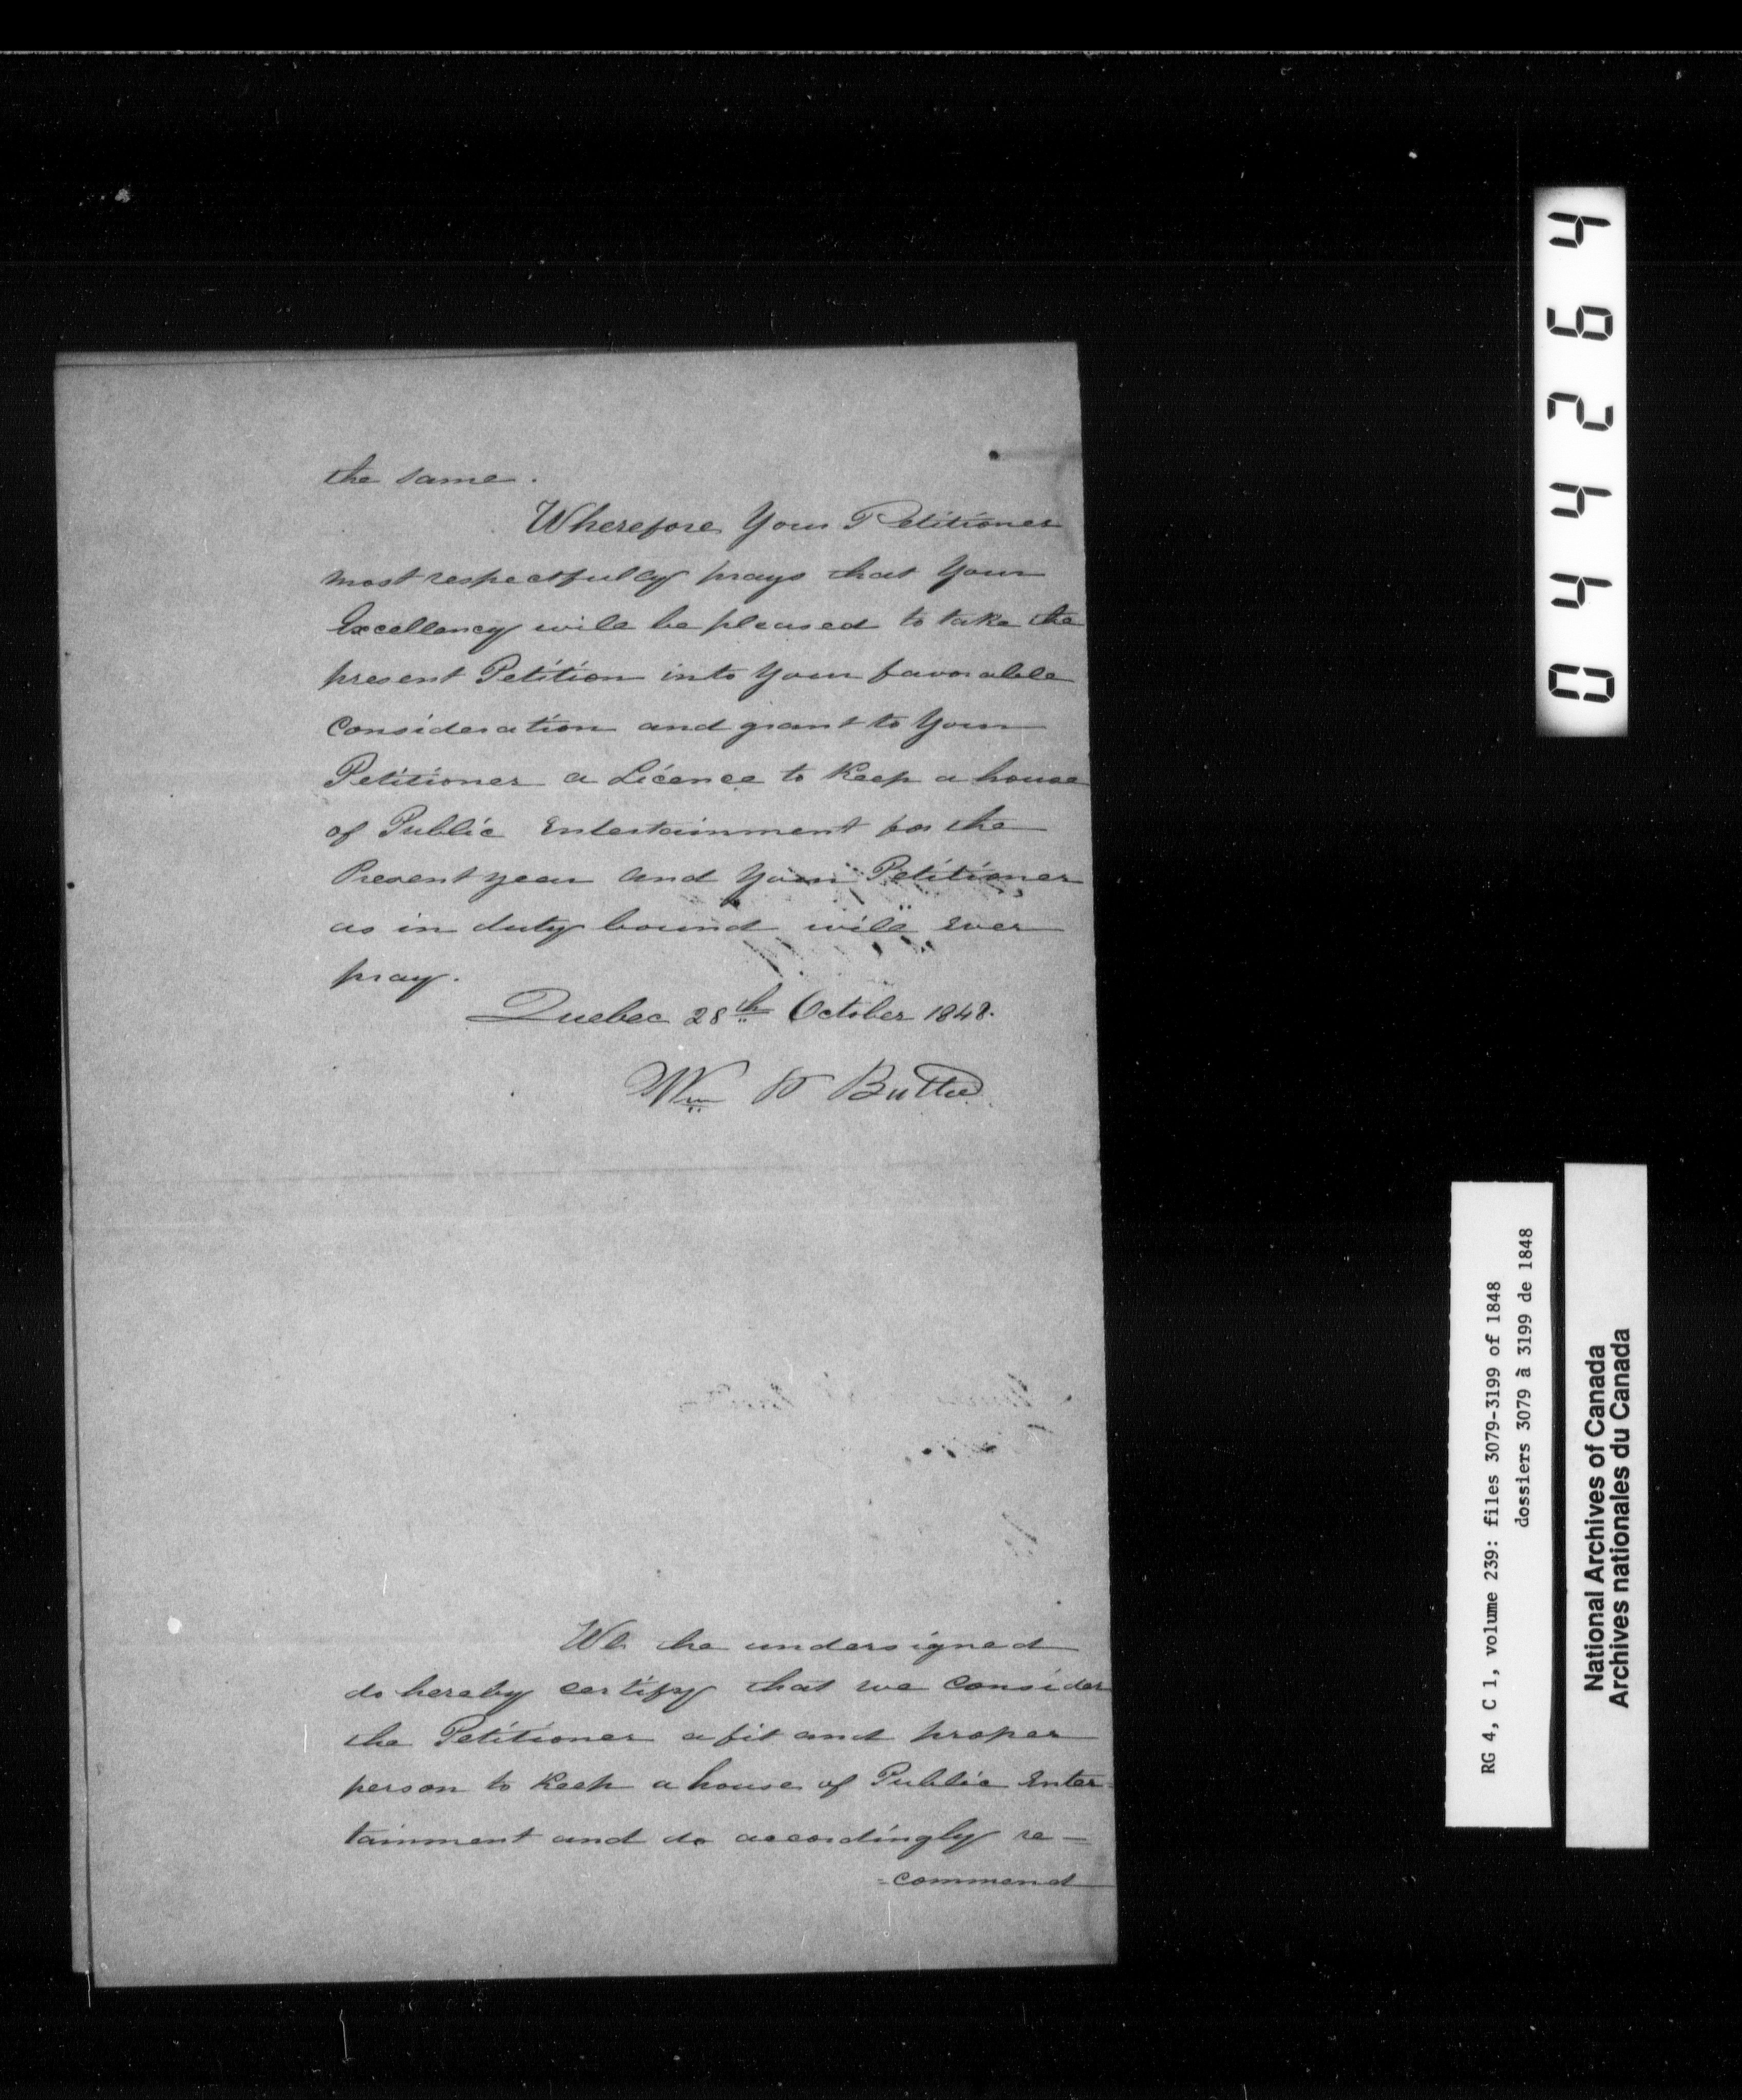 the same.
Wherefore Your Petitioner
most respectfully prays that Your
Excellency will be pleased to take the
present Petition into Your favorable
Consideration and grant to Your
Petitioner a Licence to Keep a house
of Public Entertainment for the
Present year and Your Petitioner
as in duty bound will Ever
pray.
Quebec 28th October 1848.
Wm
We the undersigned
do hereby certify that we Consider
the Petitioner a fit and proper
person to Keep a house of Public Enter-
tainment and do accordingly re-
=commend
044264
RG 4, C 1, volume 239: files 3079-3199 of 1848
dossiers 3079 à 3199 de 1848
National Archives of Canada
Archives nationales du Canada